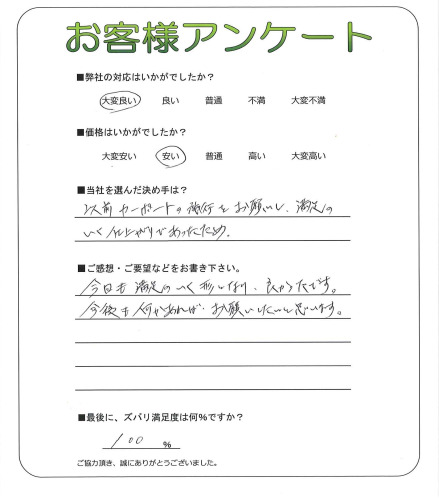 お客様アンケート
■弊社の対応はいかがでしたか?
大変良い 良い 普通 不満 大変不満
■価格はいかがでしたか?
大変安い 安い 普通 高い 大変高い
■当社を選んだ決め手は?
以前カーポートの施行をお願いし、満足の
いく仕上がりであったため。
■ご感想・ご要望などをお書き下さい。
今回も満足のいく形となり、良かったです。
今後も何かあれば、お願いしたいと思います。
■最後に、ズバリ満足度は何%ですか?
100 %
ご協力頂き、誠にありがとうございました。